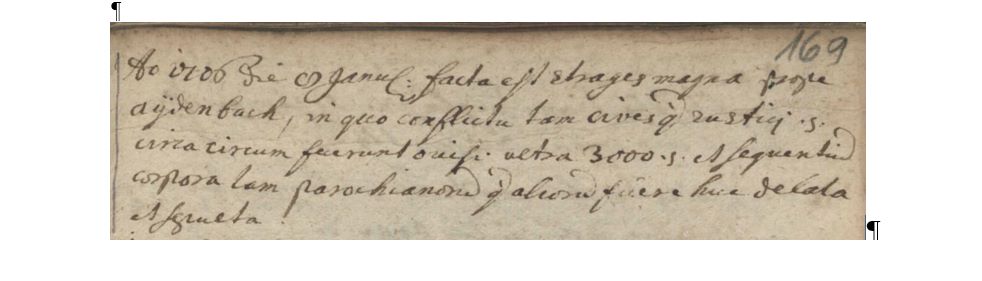 169
Ao 1706 Die 8 Januſ: facta est strages magna prope
aÿdenbach, in quo conflictu tam cives q̃ rustici .s.
circa circum fuerunt occisi. ultra 3000 .s. et sequentiũ
corpora tam parochianorũ q̃ aliorũ fuere huc delata
et sepulta